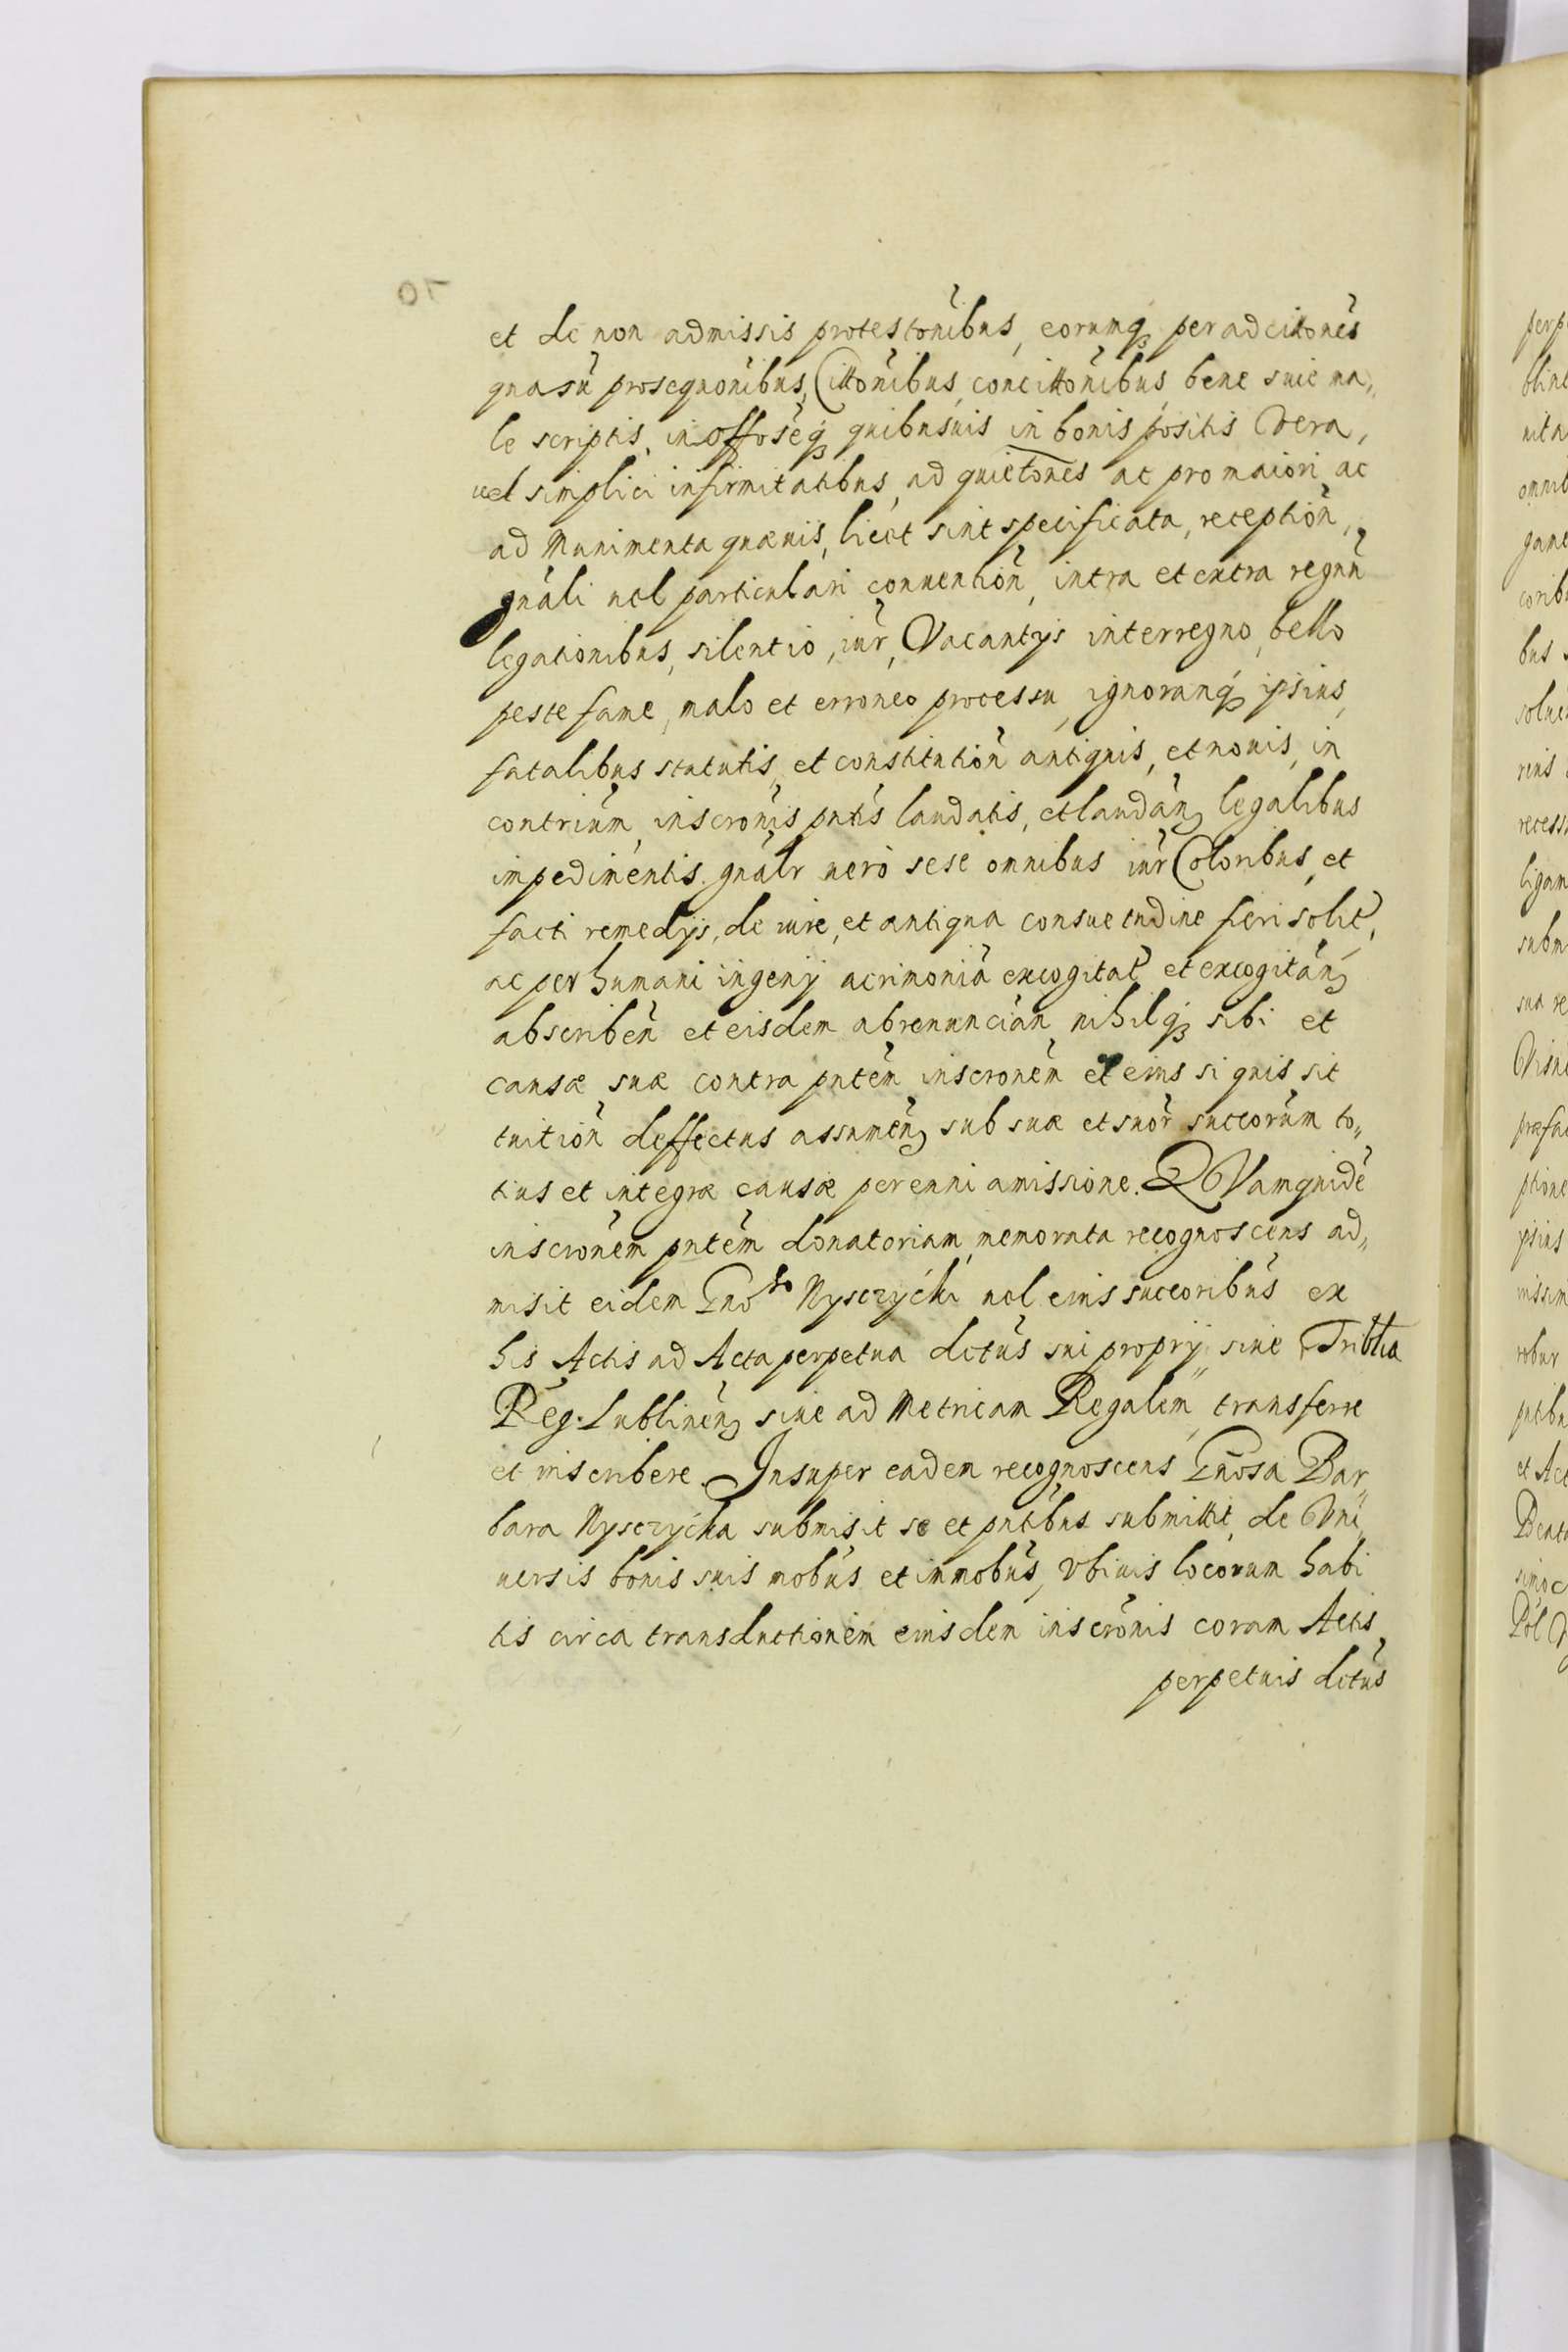 et de non admissis protestonibus, eorumq₃ per adcittones
quasū prosequonibus, Cittonibus, concittonibus, bene siue ma„
le scriptis, in offoseq₃ quibusuis in bonis positis Vera,
uel simplici infirmitatibus, ad quietones ac pro maiori ac
ad Munimenta quæuis, licet sint specificata, reception,
gnali uel particulari conuention, intra et extra regnū
legationibus, silentio, iur, Vacantijs interregno, bello
peste fame, malo et erroneo processu, ignoranq₃ ipsius,
fatalibus statutis, et constitution antiquis, et nouis, in
contrium, inscronis pntis laudatis, et laudan, legalibus
impedimentis. gnalr uero sese omnibus iur Coloribus, et
facti remedijs, de iure, et antiqua consuetudine fieri solit,
ac per humani ingenij acrimoniā excogitat et excogitan,
abscriben et eisdem abrenuncian, nihilq₃ sibi et
causæ suæ contra pntem inscronem et eius si quis sit
tuition deffectus assumen, sub suæ et suor succorum to„
tius et integræ causæ perenni amissione. QVamquidē
inscronem pntem donatoriam, memorata recognoscens ad„
misit eidem Gnoso Nyszczycki uel eius succoribus ex
his Actis ad Acta perpetua dictus sui proprij siue Triblia
Reg. Lublinen, siue ad Metricam Regalem, transferre
et inscribere. Insuper eadem recognoscens Gnosa Bar„
bara Nysczycka submisit se et pntibus submittit, de Vni„
uersis bonis suis mobus et immobus, Vbiuis locorum habi
tis circa transductionem eiusdem inscronis coram Actis
perpetuis dictus